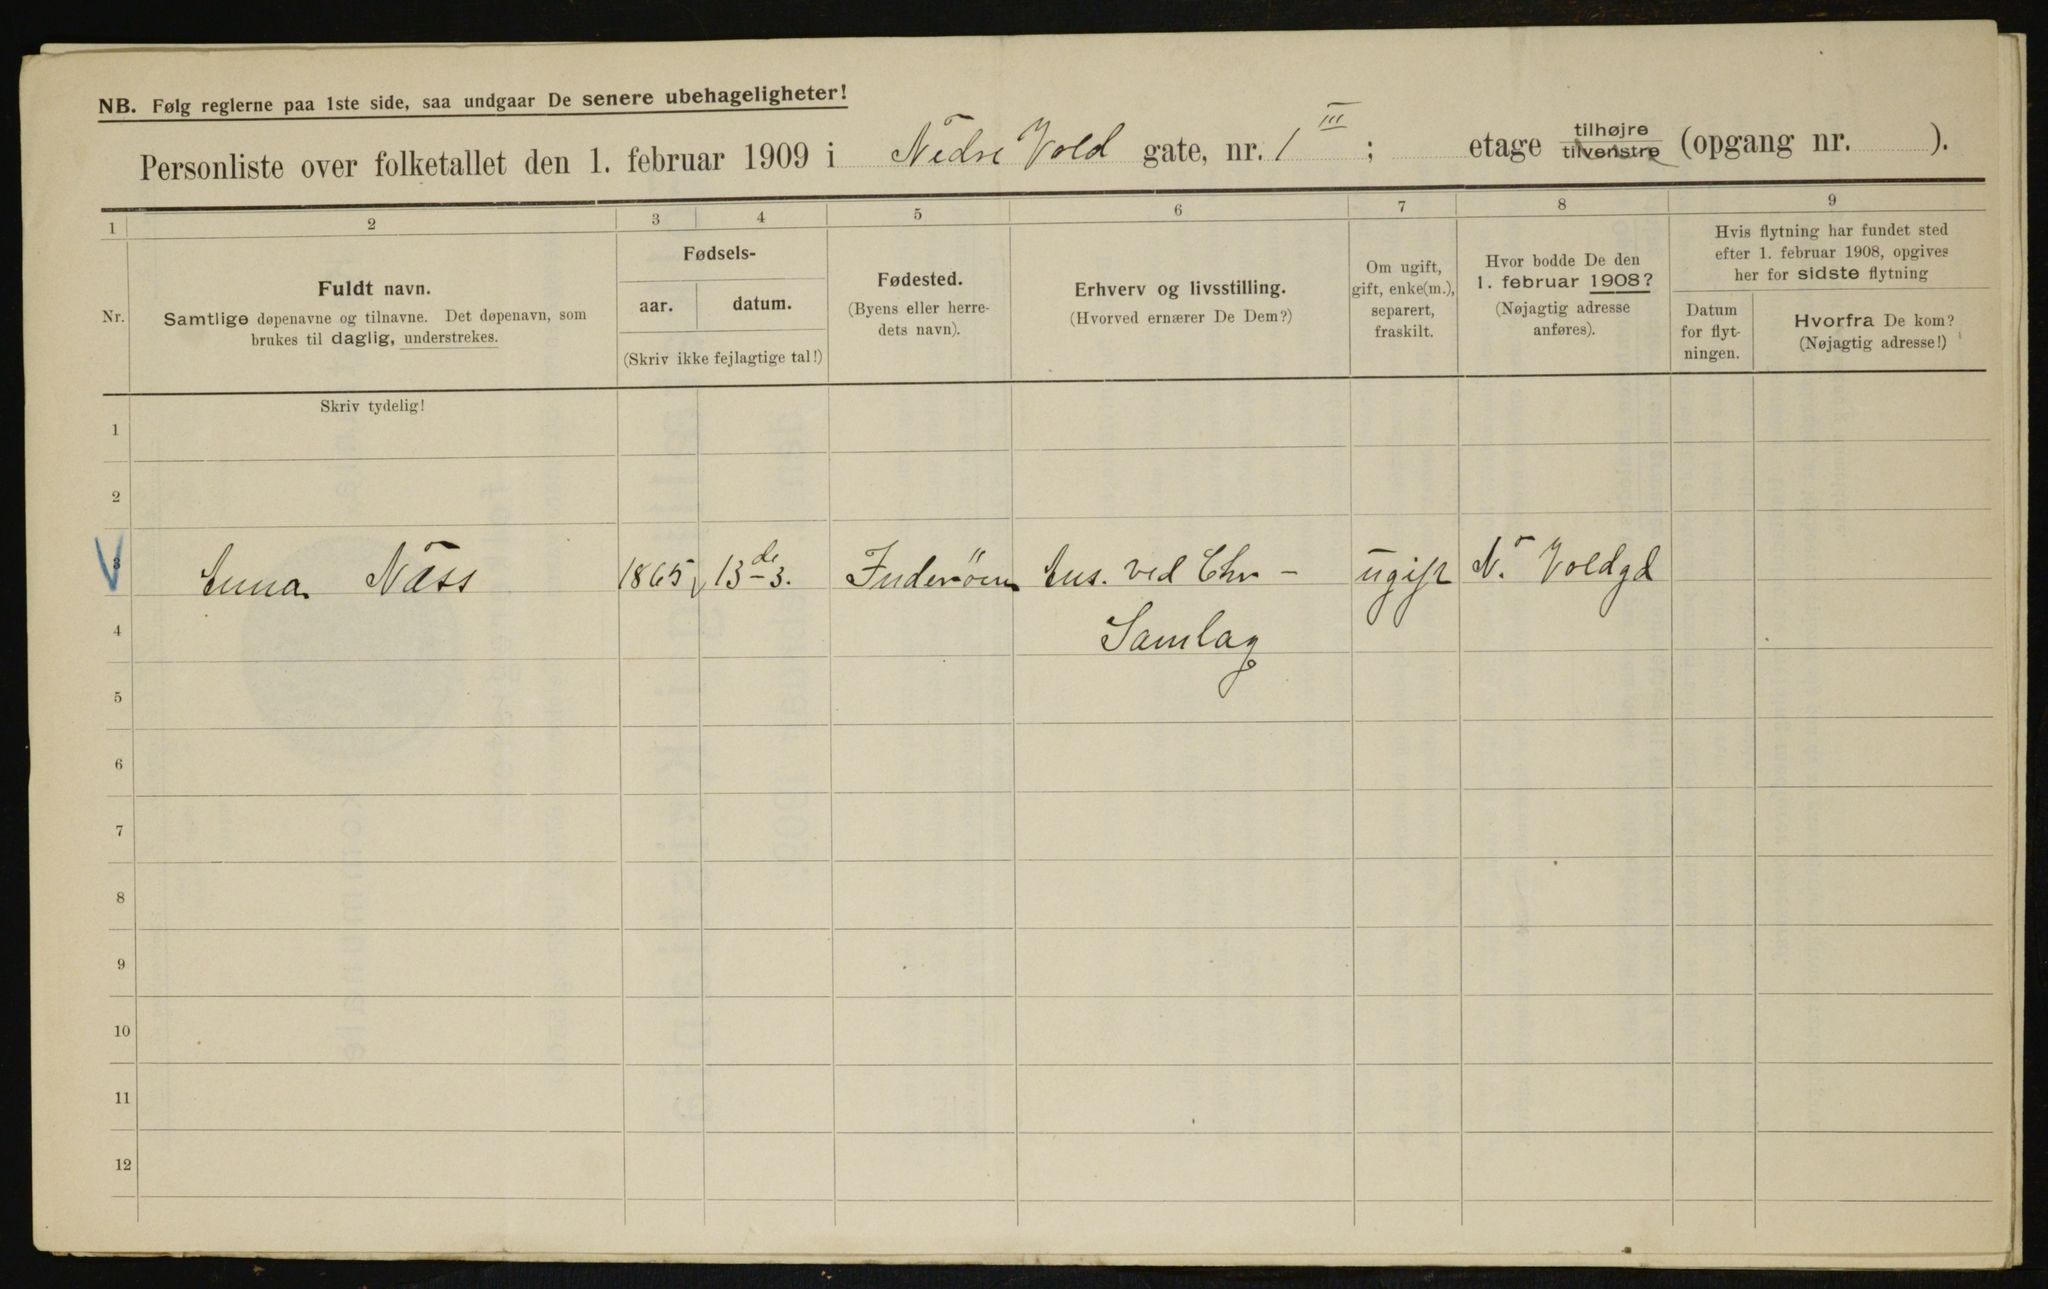 NB. Følg reglerne paa 1ste side, saa undgaar De senere ubehageligheter!
Personliste over folketallet den 1. februar 1909 i Nedre Vold gate, nr. 1 III ; etage tilhøjre tilvenstre (opgang nr. ).
1 2 3 4 5 6 7 8 9
Nr.
Fuldt navn.
Samtlige døpenavne og tilnavne. Det døpenavn, som
brukes til daglig, understrekes.
Fødsels-
aar. datum.
(Skriv ikke fejlagtige tal!)
Fødested.
(Byens eller herre-
dets navn).
Erhverv og livsstilling.
(Hvorved ernærer De Dem?)
Om ugift,
gift, enke(m.),
separert,
fraskilt.
Hvor bodde De den
1. februar 1908?
(Nøjagtig adresse
anføres).
Hvis flytning har fundet sted
efter 1. februar 1908, opgives
her for sidste flytning
Datum
for flyt-
ningen.
Hvorfra De kom?
(Nøjagtig adresse!)
Skriv tydelig!
1
2
3 Anna Næss 1865 13de-3. Inderøen Ans. ved Chr - ugift N. Voldgd
4 Samlag
5
6
7
8
9
10
11
12